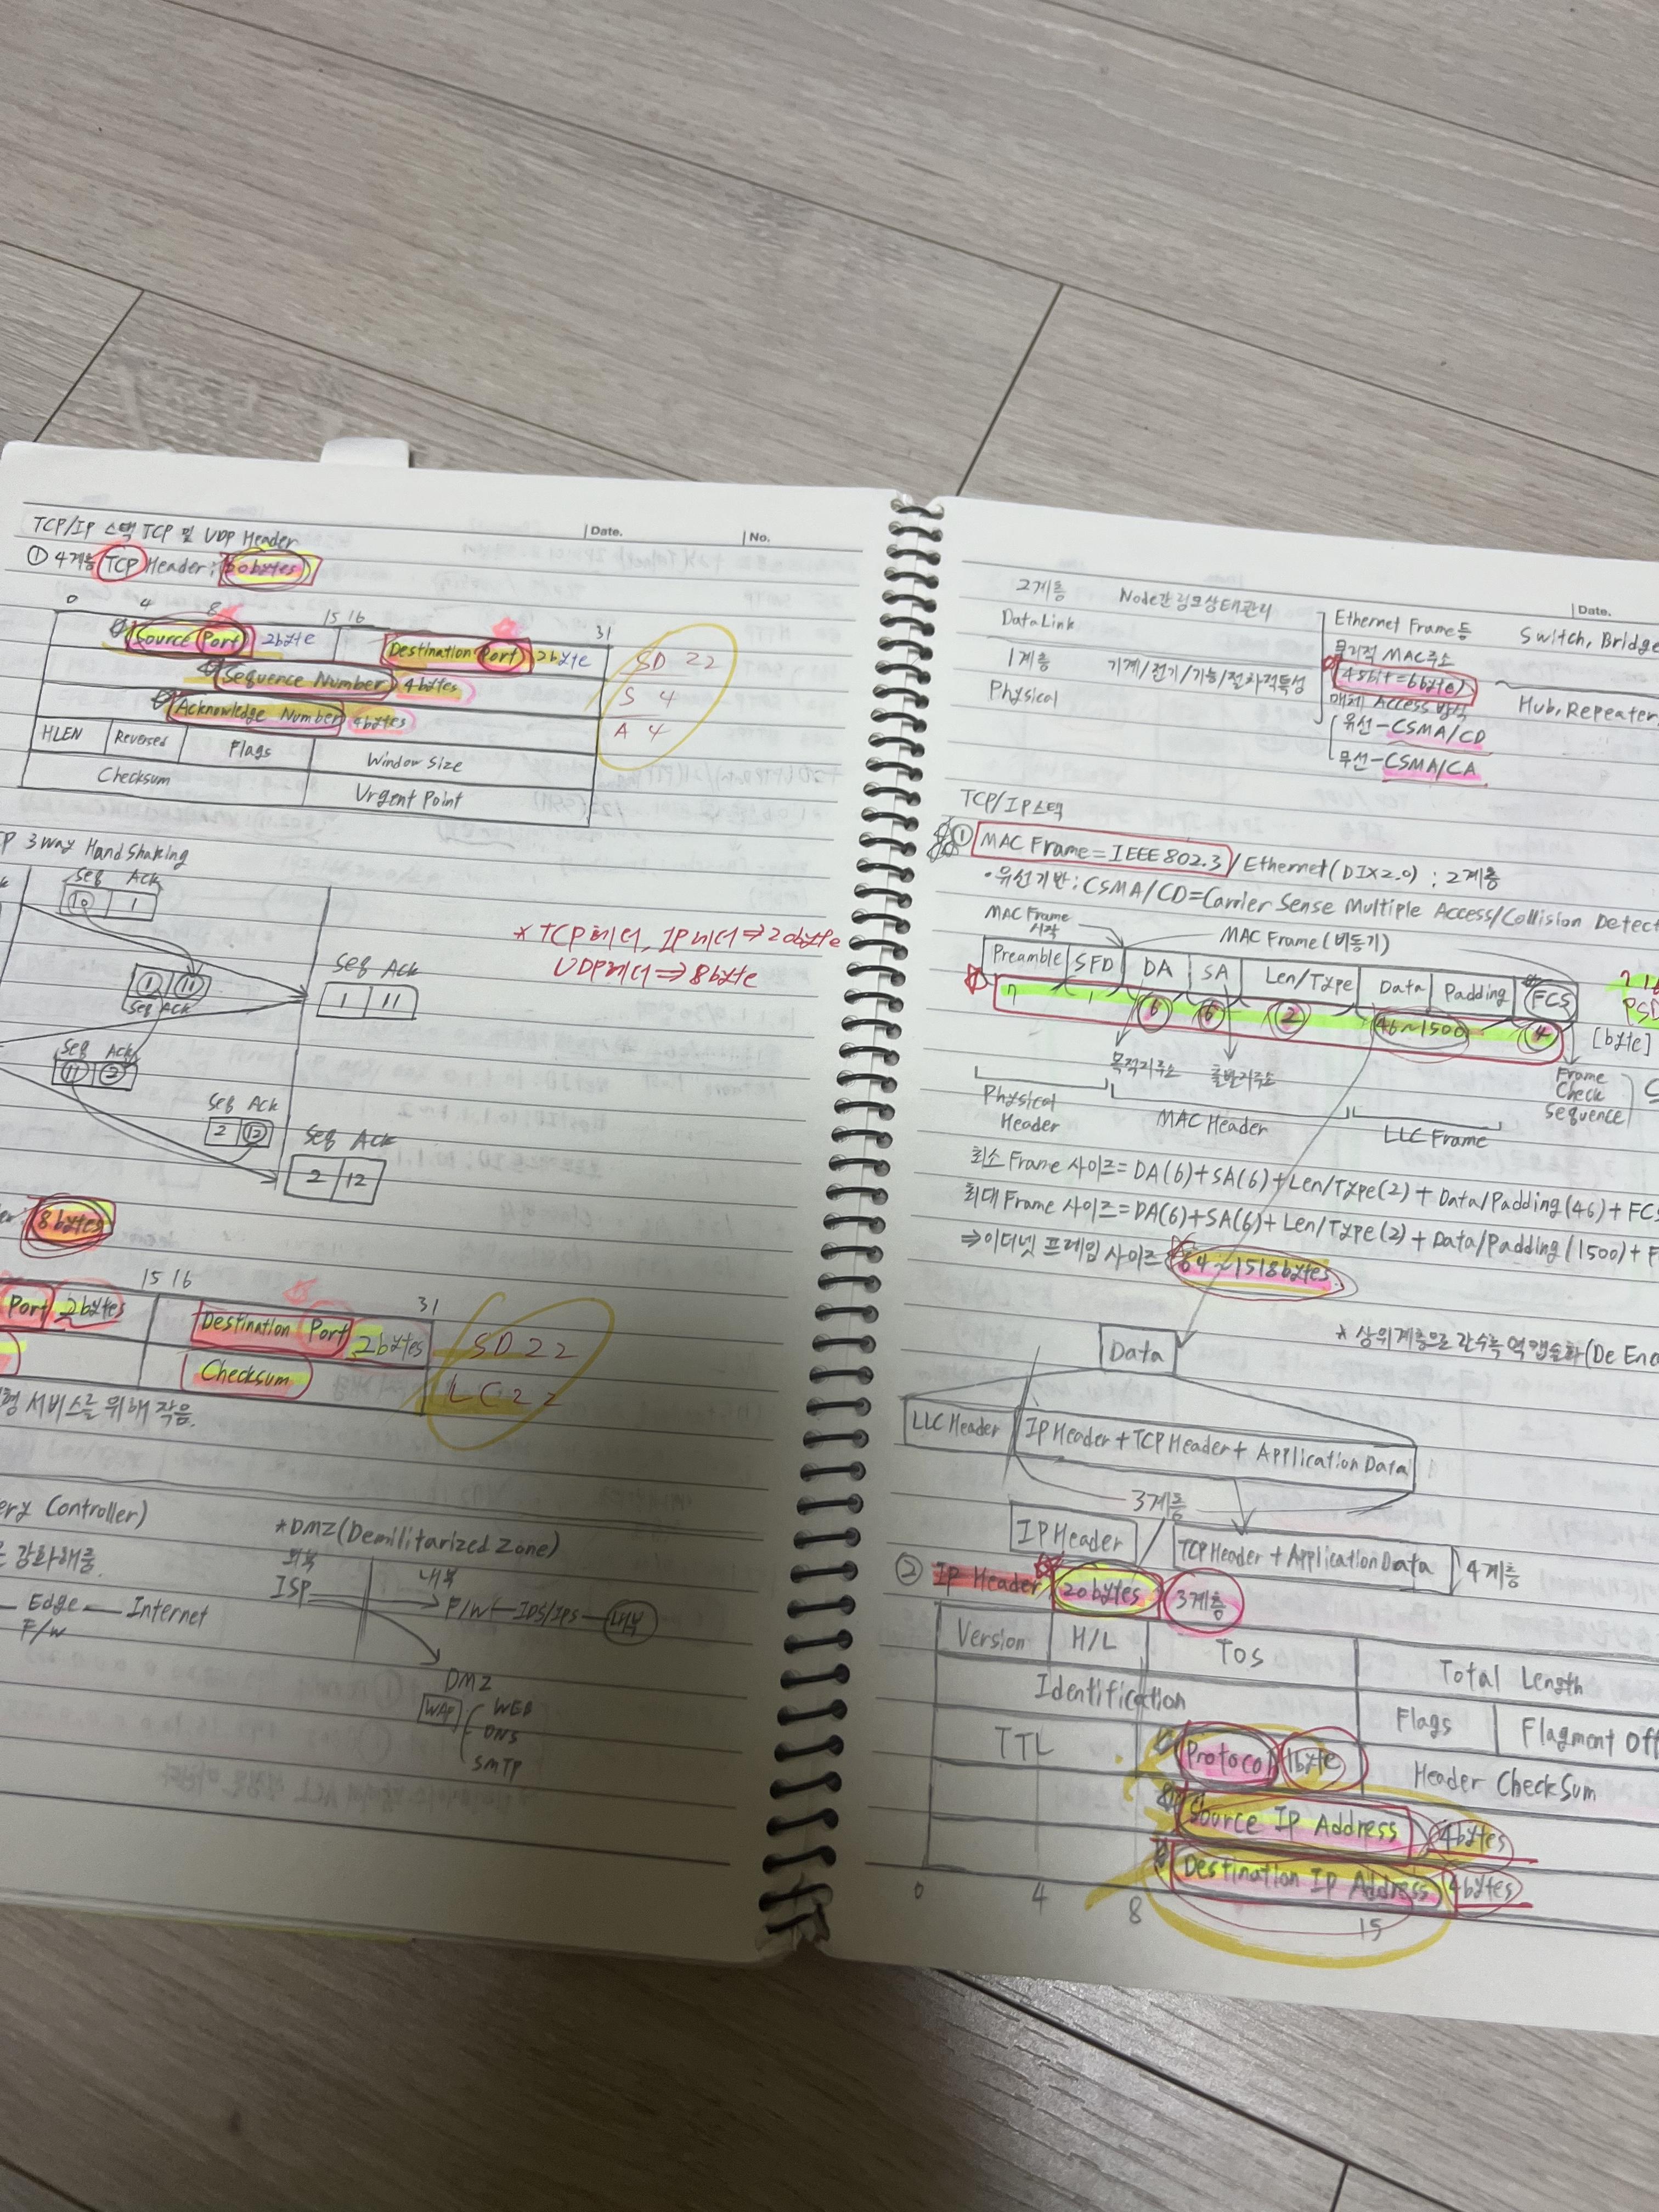 TCP/IP 스택 TCP 및 UDP Header
Date.
No.
① 4계층 TCP Header: 20bytes
0 4 8 15 16 31
Source Port 2byte Destination Port 2byte SD 22
Sequence Number 4bytes S 4
Acknowledge Number 4bytes A 4
HLEN Reversed Flags Window Size
Checksum Urgent Point
3way HandShaking
Seq Ack
10 1
1 11
Seq Ack
Seq Ack
1 11
Seq Ack
11 2
Seq Ack
2 12
Seq Ack
2 12
* TCP헤더, IP헤더 ⇒ 20byte
UDP헤더 ⇒ 8byte
8bytes
15 16 31
Port 2bytes Destination Port 2bytes SD 22
Checksum LC 22
서비스를 위해 작음.
Controller)
강화해줌.
Edge — Internet
F/W
*DMZ(Demilitarized Zone)
외부
ISP
내부
F/W — IDS/IPS — 내부
DMZ
WAF
WEB
DNS
SMTP
Date.
2계층 Node간 링크상태관리 Ethernet Frame등 Switch, Bridge
DataLink 물리적 MAC주소
1계층 기계/전기/기능/절차적특성 48bit=6byte)
Physical 매체 Access 방식 Hub, Repeater,
유선-CSMA/CD
무선-CSMA/CA
TCP/IP스택
① MAC Frame=IEEE 802.3/Ethernet(DIX2.0) : 2계층
·유선기반: CSMA/CD=Carrier Sense Multiple Access/Collision Detect
MAC Frame 시작
MAC Frame(비동기)
Preamble SFD DA SA Len/Type Data Padding FCS
7 1 6 6 2 46~1500 4 [byte]
목적지주소 출발지주소
Frame Check Sequence
Physical Header MAC Header LLC Frame
최소 Frame 사이즈=DA(6)+SA(6)+Len/Type(2)+Data/Padding(46)+FCS
최대 Frame 사이즈=DA(6)+SA(6)+Len/Type(2)+Data/Padding(1500)+F
⇒이더넷 프레임 사이즈 64~1518bytes
* 상위계층으로 갈수록 역캡슐화(De
Data
LLC Header IP Header+TCP Header+Application Data
3계층
IP Header TCP Header+Application Data 4계층
② IP Header 20bytes 3계층
Version H/L TOS Total Length
Identification Flags Flagment Off
TTL Protocol 1byte Header CheckSum
Source IP Address 4bytes
Destination IP Address 4bytes
0 4 8 15